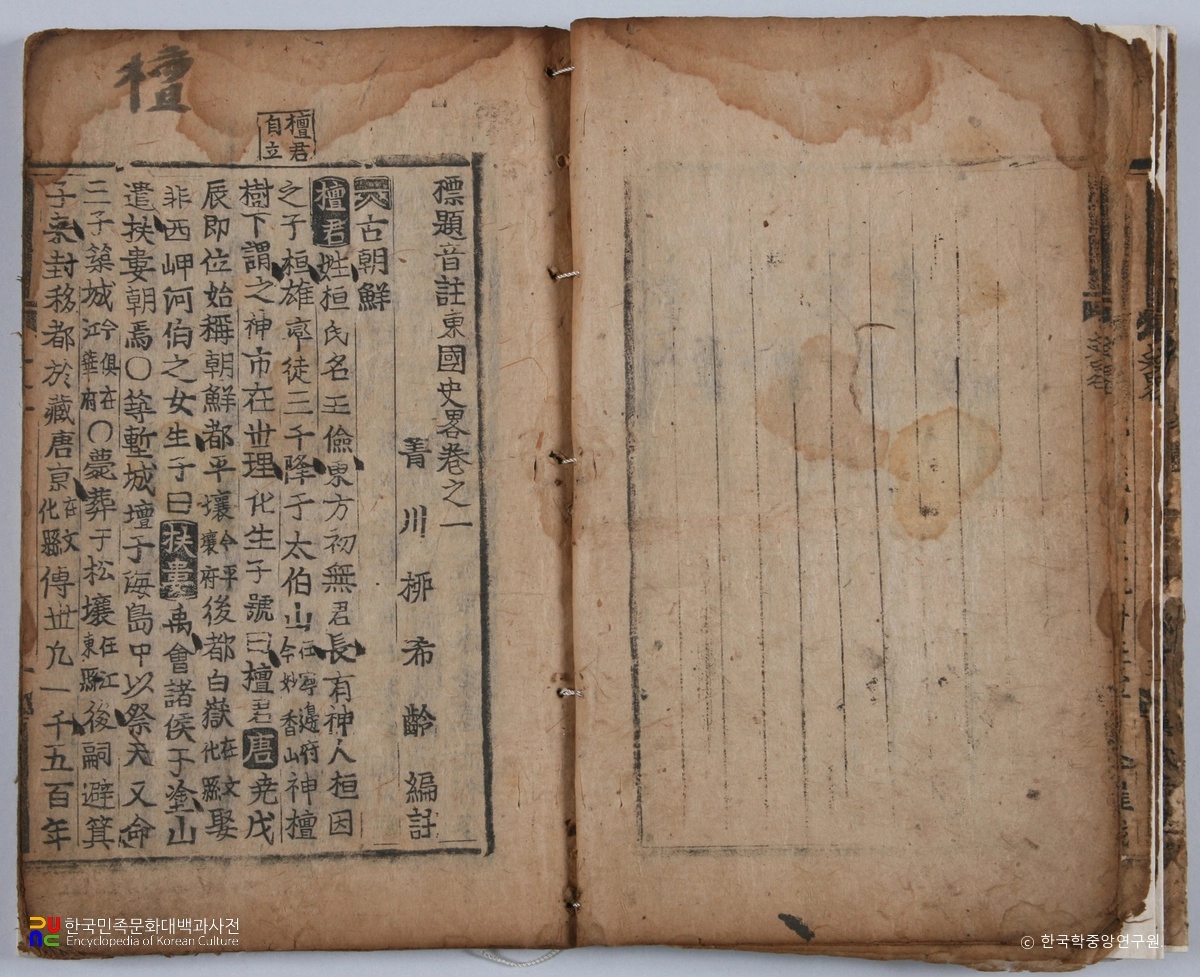 檀
檀君
自立
標題音註東國史畧卷之一
菁川柳希齡編註
古朝鮮
檀君姓桓氏名王儉東方初無君長有神人桓因
之子桓雄率徒三千降于太伯山在寧邊府今妙香山神檀
樹下謂之神市在世理化生子號曰檀君唐堯戊
辰即位始稱朝鮮都平壤今平壤府後都白嶽在文化縣娶
非西岬河伯之女生子曰扶婁禹會諸侯于塗山
遣扶婁朝焉○築塹城壇于海島中以祭天又命
三子築城今俱在江華府○薨葬于松壤在江東縣後嗣避箕
子來封移都於藏唐京在文化縣傳世九一千五百年
한국민족문화대백과사전
Encyclopedia of Korean Culture
© 한국학중앙연구원